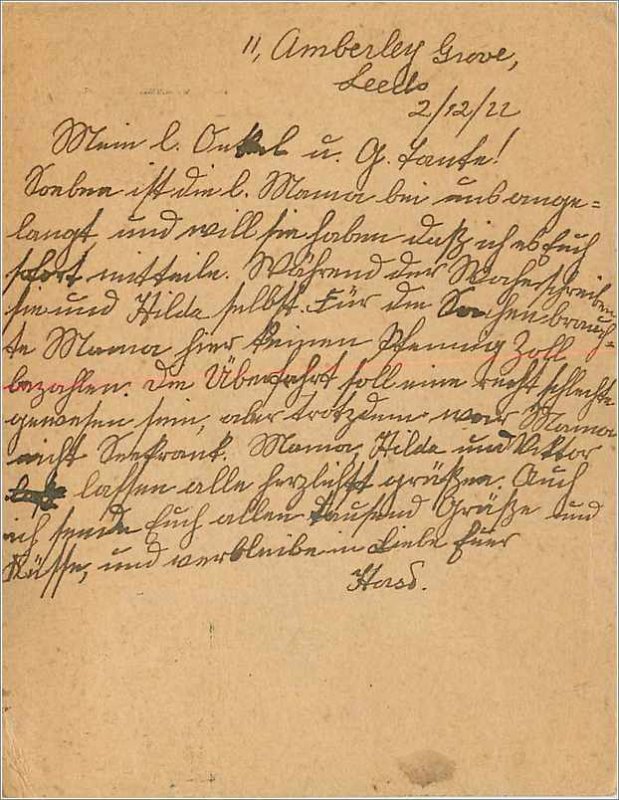 11, Amberley Grove,
Leeds
2/12/22
Mein l. Onkel u. G. Tante!
Soeben ist die l. Mama bei uns ange=
langt, und will sie haben daß ich es Euch
sofort mitteile. Während der Woche schreiben
sie und Hilda selbst. Für die Sachen brauch=
te Mama hier keinen Pfennig Zoll
bezahlen. Die Überfahrt soll eine recht schlechte
gewesen sein, aber trotzdem war Mama
nicht Seekrank. Mama, Hilda und Viktor
lassen alle herzlichst grüßen. Auch
ich sende Euch allen tausend Grüße und
Küsse, und verbleibe in Liebe Euer